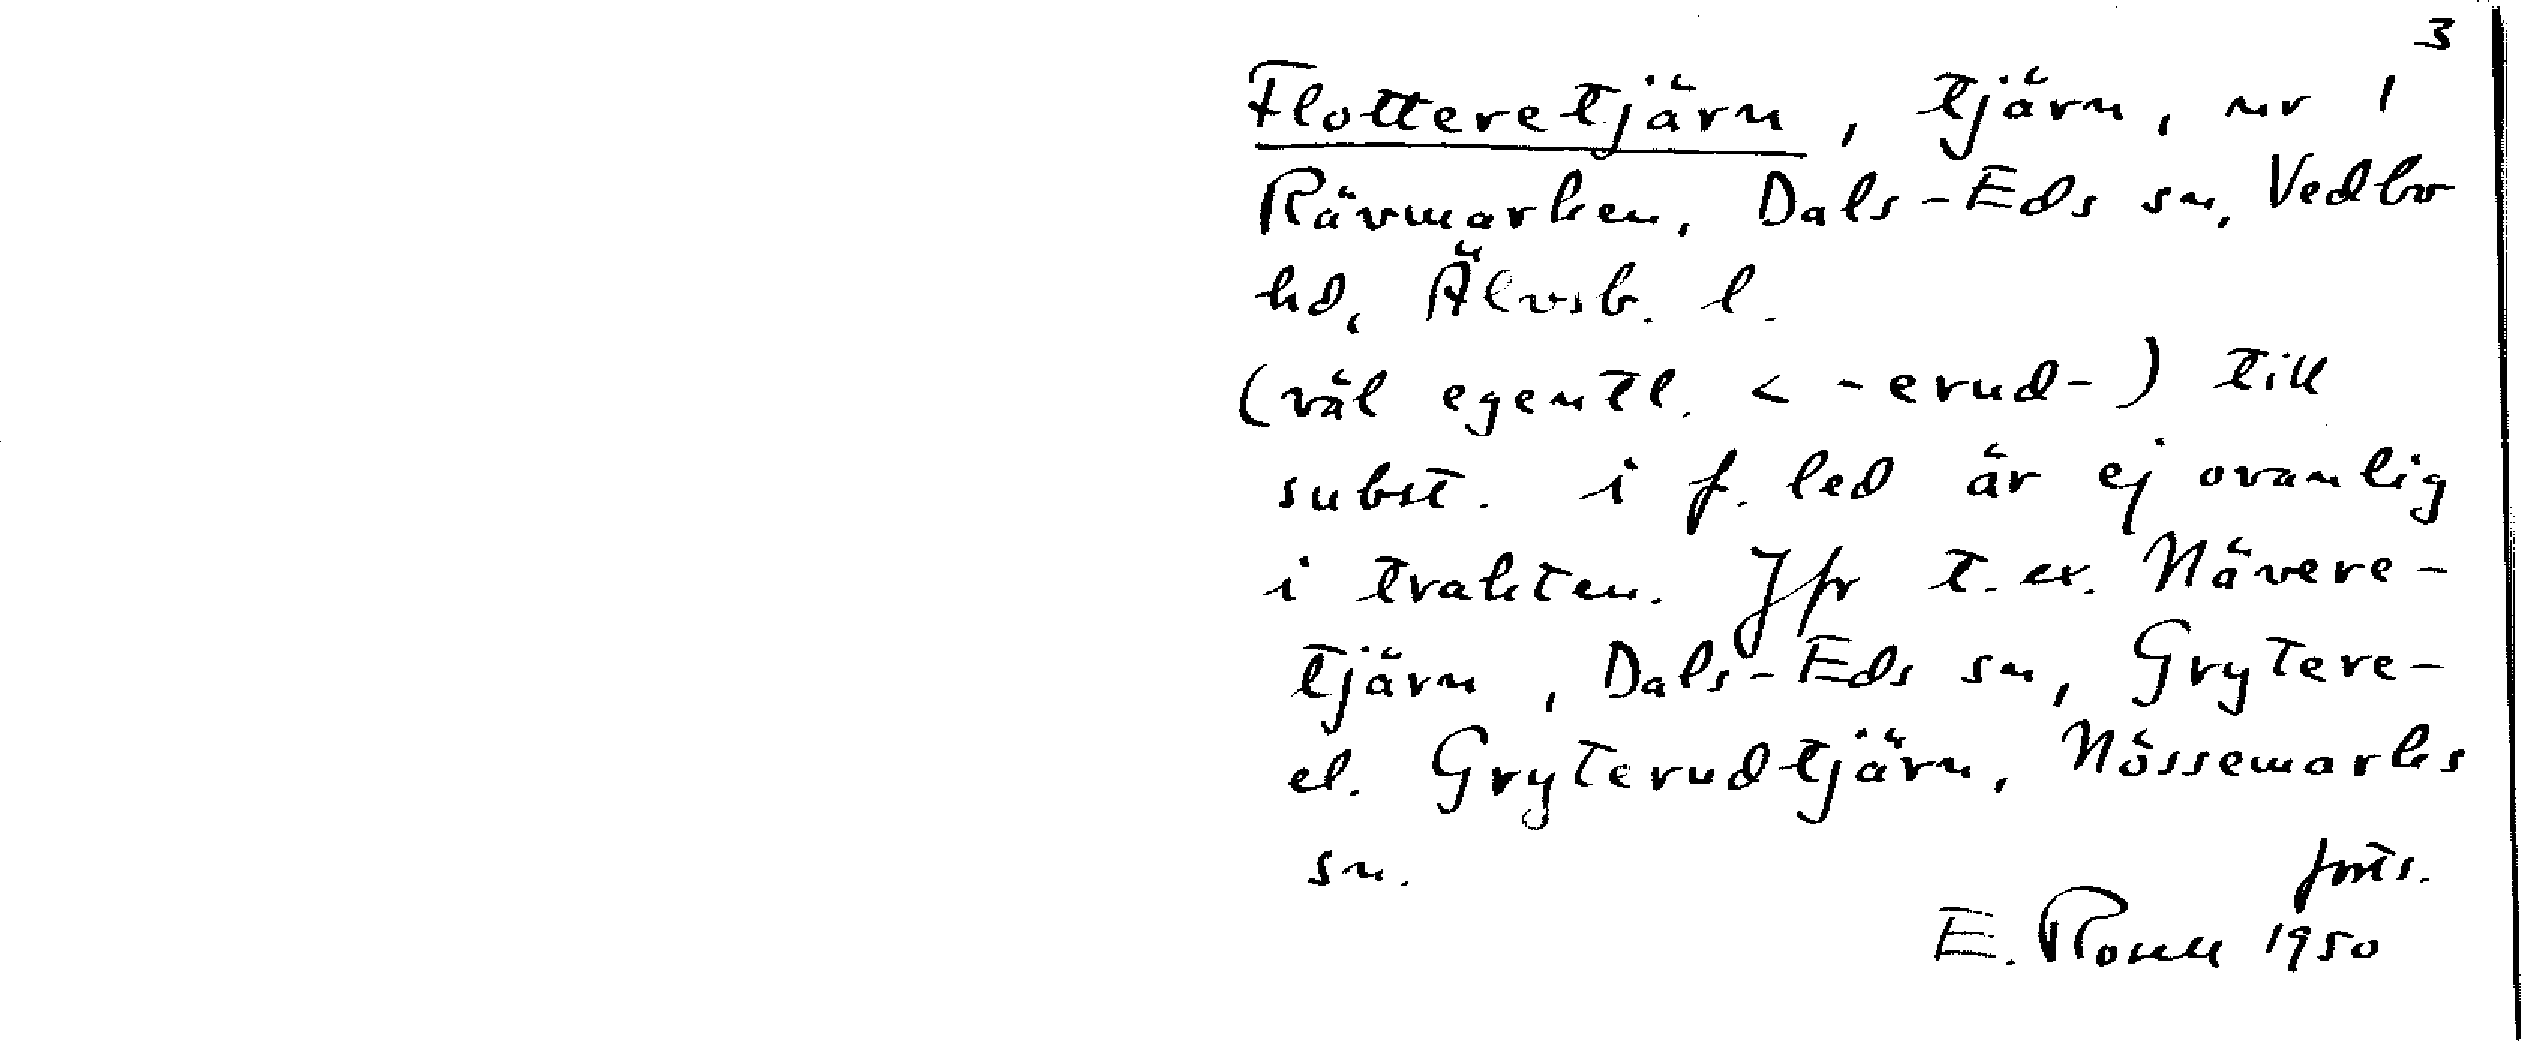 3
Flotteretjärn, tjärn, nr 1
Rävmarken, Dals-Eds sn, Vedbo
hd, Älvsb. l.
(väl egentl. < -erud-) till
subst. i f. led är ej ovanlig
i trakten. Jfr t. ex. Nävere-
tjärn, Dals-Eds sn, Grytere-
el. Gryterudtjärn, Nössemarks
sn. forts.
E. Rosell 1950